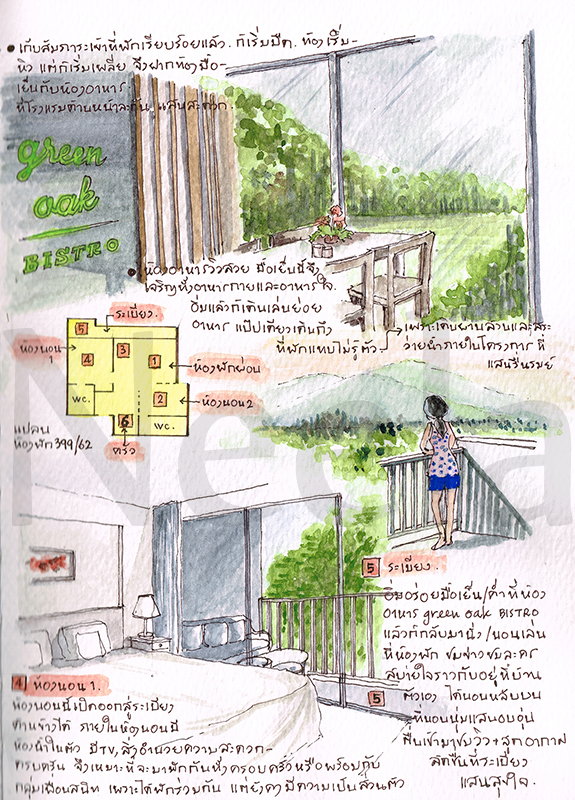 • เก็บสัมภาระเข้าที่พักเรียบร้อยแล้ว ก็เริ่มมืด ท้องเริ่ม-
หิว แต่ก็เริ่มเพลีย จึงฝากท้องมื้อ-
เย็นกับห้องอาหาร
ที่โรงแรมด้านหน้าละกัน แสนสะดวก.
green
oak
BISTRO
• ห้องอาหารวิวสวย มื้อเย็นนี้จึง
เจริญทั้งอาหารกายและอาหารใจ.
อิ่มแล้วก็เดินเล่นย่อย
อาหาร แป๊ปเดียวเดินถึง
ที่พักแทบไม่รู้ตัว.
เพราะเดินผ่านสวนและสระ
ว่ายน้ำภายในโครงการ ที่
แสนรื่นรมย์
ระเบียง.
5
ห้องนอน
1
4
3
1
ห้องพักผ่อน
2
ห้องนอน 2
WC.
WC.
6
ครัว
แปลน
ห้องพัก 399/62
Neda
5 ระเบียง.
อิ่มอร่อยมื้อเย็น/ค่ำที่ห้อง
อาหาร green oak BISTRO
แล้วก็กลับมานั่ง/นอนเล่น
ที่ห้องพัก ชมข่าวชมละคร
สบายใจราวกับอยู่ที่บ้าน
ตัวเอง ได้นอนหลับบน
ที่นอนนุ่มแสนอบอุ่น
ตื่นเช้ามาชมวิว+สูดอากาศ
สดชื่นที่ระเบียง
แสนสุขใจ.
5
4 ห้องนอน 1.
ห้องนอนนี้เปิดออกสู่ระเบียง
ด้านข้างได้ ภายในห้องนอนมี
ห้องน้ำในตัว มีTV,สิ่งอำนวยความสะดวก-
ครบครัน จึงเหมาะที่จะมาพักกันทั้งครอบครัวหรือพร้อมกับ
กลุ่มเพื่อนสนิท เพราะได้พักร่วมกัน แต่ยังคงมีความเป็นส่วนตัว